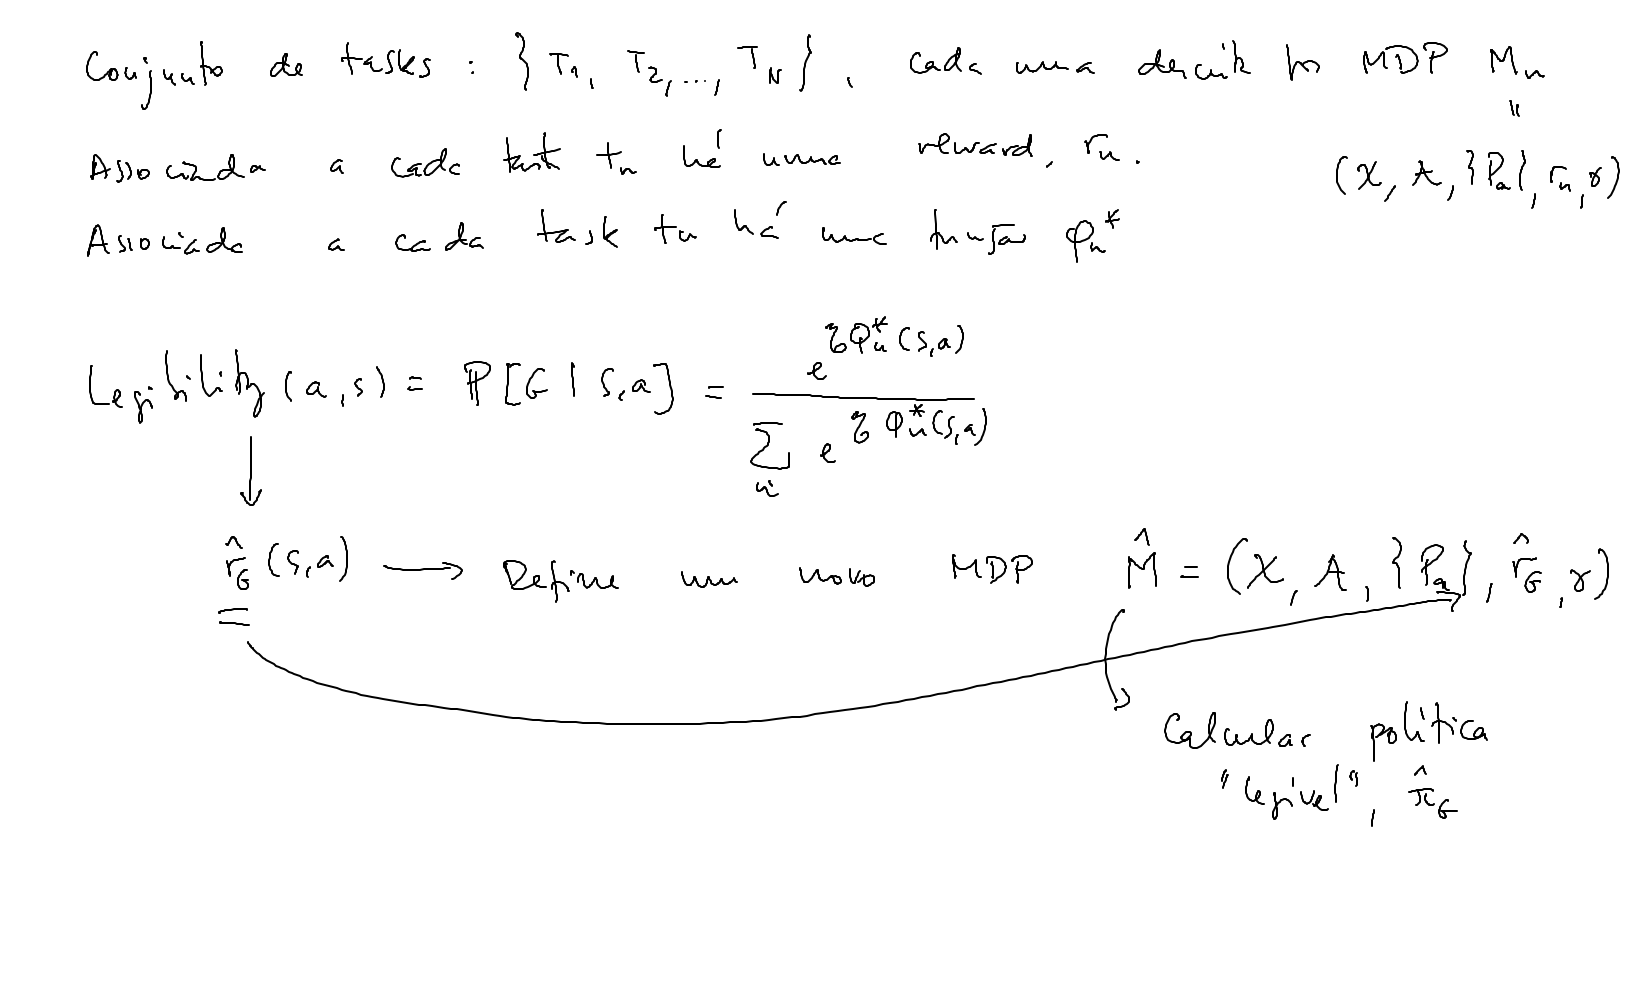 Conjunto de tasks : {T1, T2, ..., TN}, cada uma descrita por MDP Mn
"
Associada a cada task tn há uma reward, rn.
(X, A, {Pa}, rn, γ)
Associada a cada task tn há uma função φn*
Legibility(a,s) = ℙ[G | s,a] = e^{ηQn*(s,a)} / Σn e^{ηQn*(s,a)}
↓
r̂G(s,a) → Define um novo MDP M̂ = (X, A, {Pa}, r̂G, γ)
Calcular política
"legível", π̂G